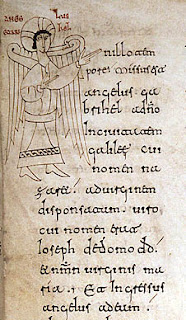 n illo tem
pore missus est
angelus ga
brihel a dno
In ciuitatem
galilee cui
nomen na
zare. ad uirginem
disponsatam. uiro
cui nomen erat
Ioseph de domo dd.
et nmn uirginis ma
ria. Et Ingressus
angelus ad eam.